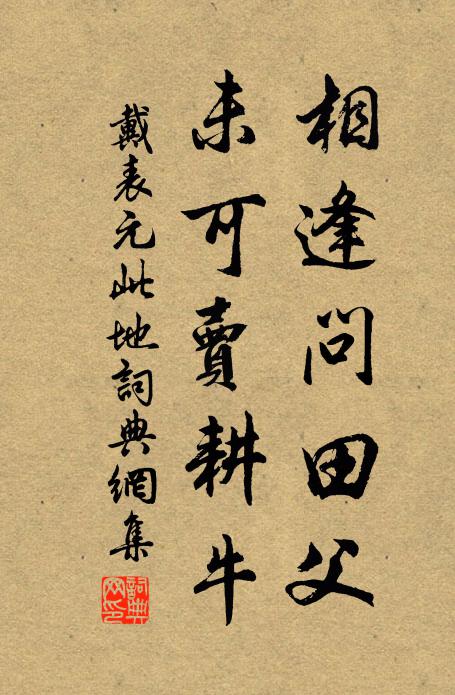 相逢問田父
未可賣耕牛
戴表元此地詞典網集
詞典
网印